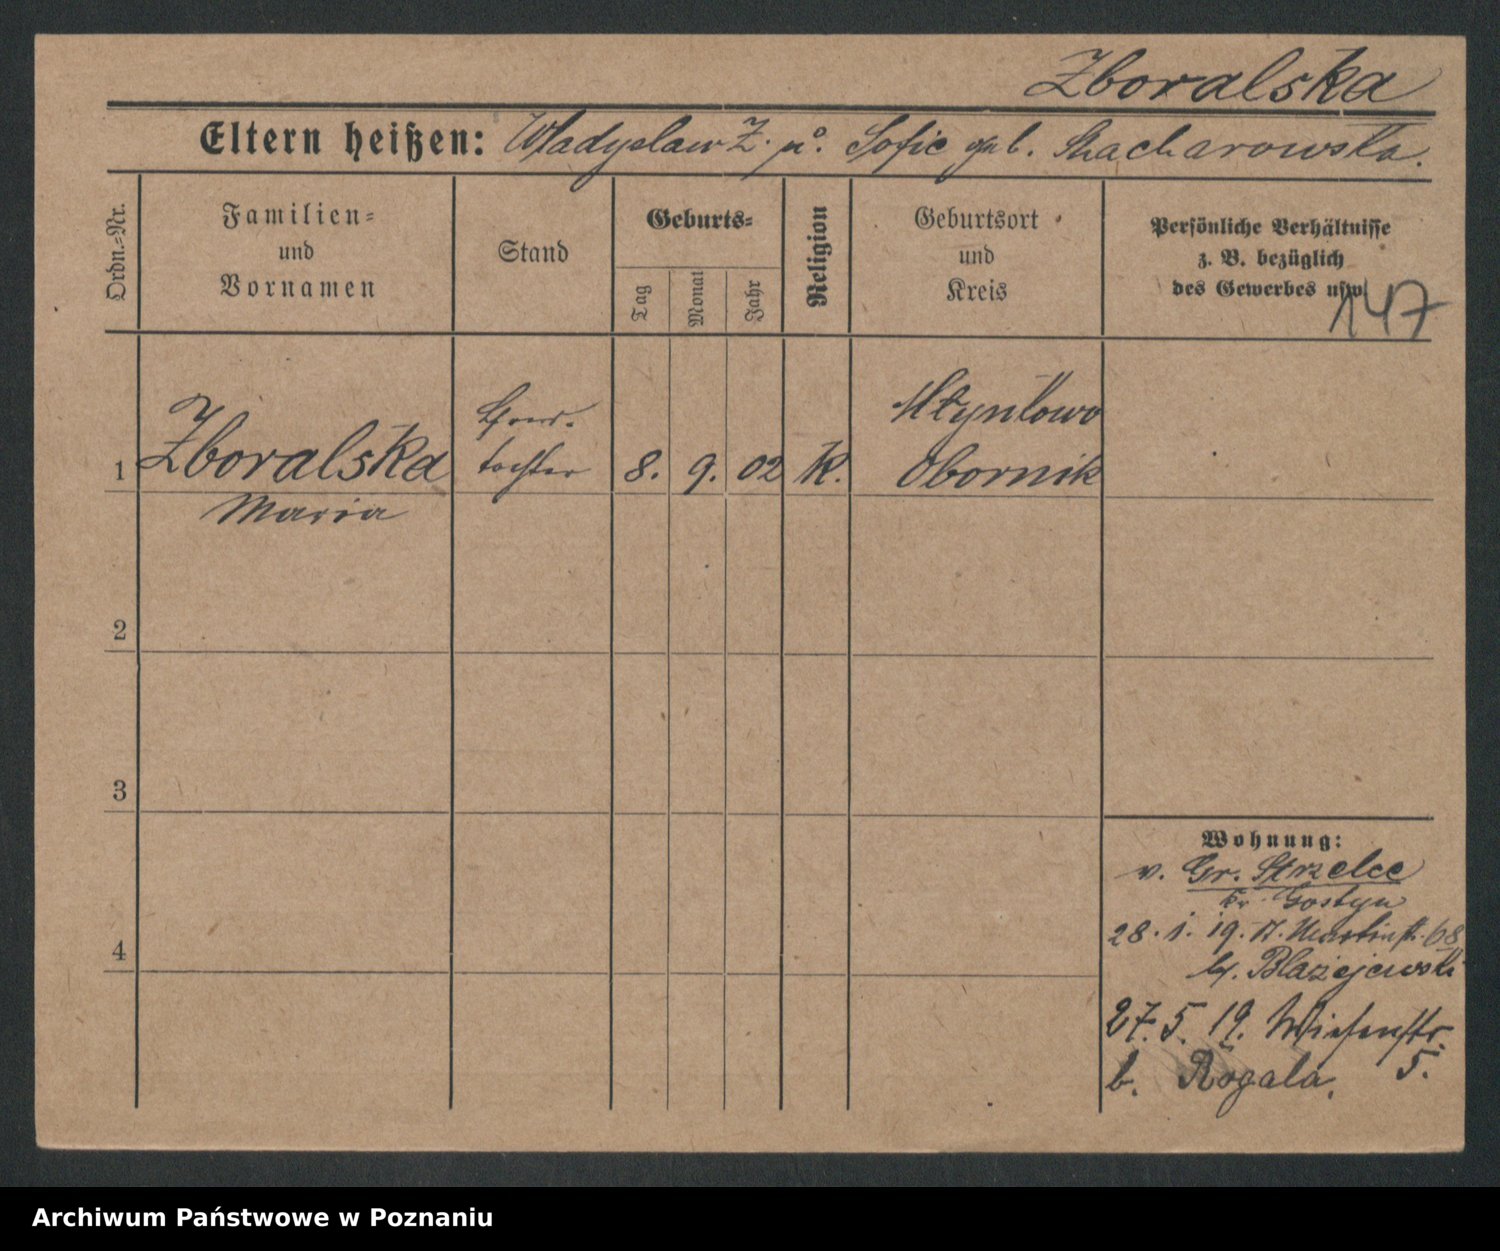 Zboralska
Eltern heißen: Wladyslaw Z. u. Sofie geb. Stacharowska.
Ordn.=Nr.
Familien=
und
Vornamen
Stand
Geburts=
Tag
Monat
Jahr
Religion
Geburtsort
und
Kreis
Persönliche Verhältnisse
z. B. bezüglich
des Gewerbes usw.
147
1
Zboralska
Maria
tochter
8. 9. 02
K.
Młynkowo
Obornik
2
3
4
Wohnung:
v. Gr. Strzelce
Kr. Gostyn
28. 1. 19. St. Martinstr. 68
b/. Blazejewski
27. 5. 19. Wiesenstr. 5.
b. Rogala.
Archiwum Państwowe w Poznaniu